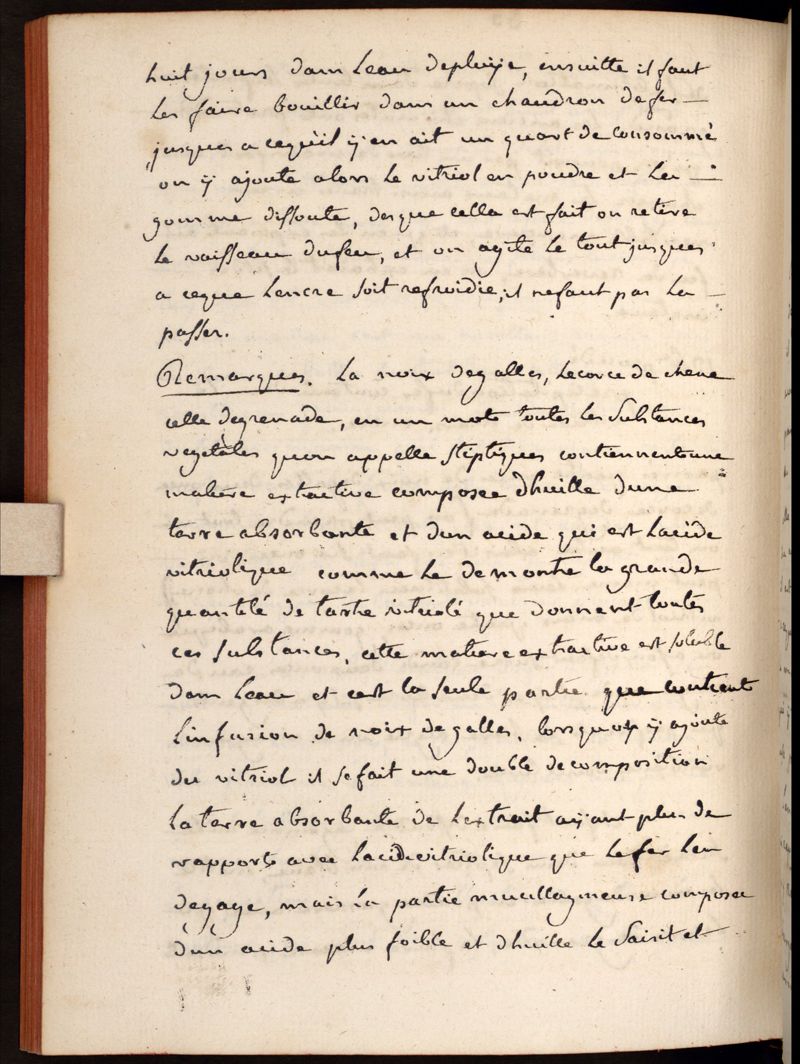 huit jours dans leau depluije, ensuitte il faut
les faire bouillir dans un chaudron defer —
jusques a cequ'il ÿ en ait un quart de consommé
on ÿ ajoute alors le vitriol en poudre et la —
gomme dissoute, desque cella est fait on retire
le vaisseau dufeu, et on agite le tout jusques
a ceque lencre soit refroidie, il nefaut pas la —
passer.
Remarques. La noix degalles, lecorce de chene
celle degrenade, en un mots toutes les substances
vegetales quon appelle stiptiques contiennent une
matiere extractive composee dhuille dune
terre absorbante et dun acide qui est lacide
vitriolique comme le demontre la grande
quantité de tartre vitriolé que donnent toutes
ces substances, cette matiere extractive est soluble
dans leau et cest la seule partie que contient
linfusion de noix de galles, lorsquon ÿ ajoute
du vitriol il se fait une double decomposition
la terre absorbante de lextrait aÿant plus de
rapports avec lacide vitriolique que le fer len
degage, mais la partie mucillagineuse composee
dun acide plus foible et dhuille le saisit et